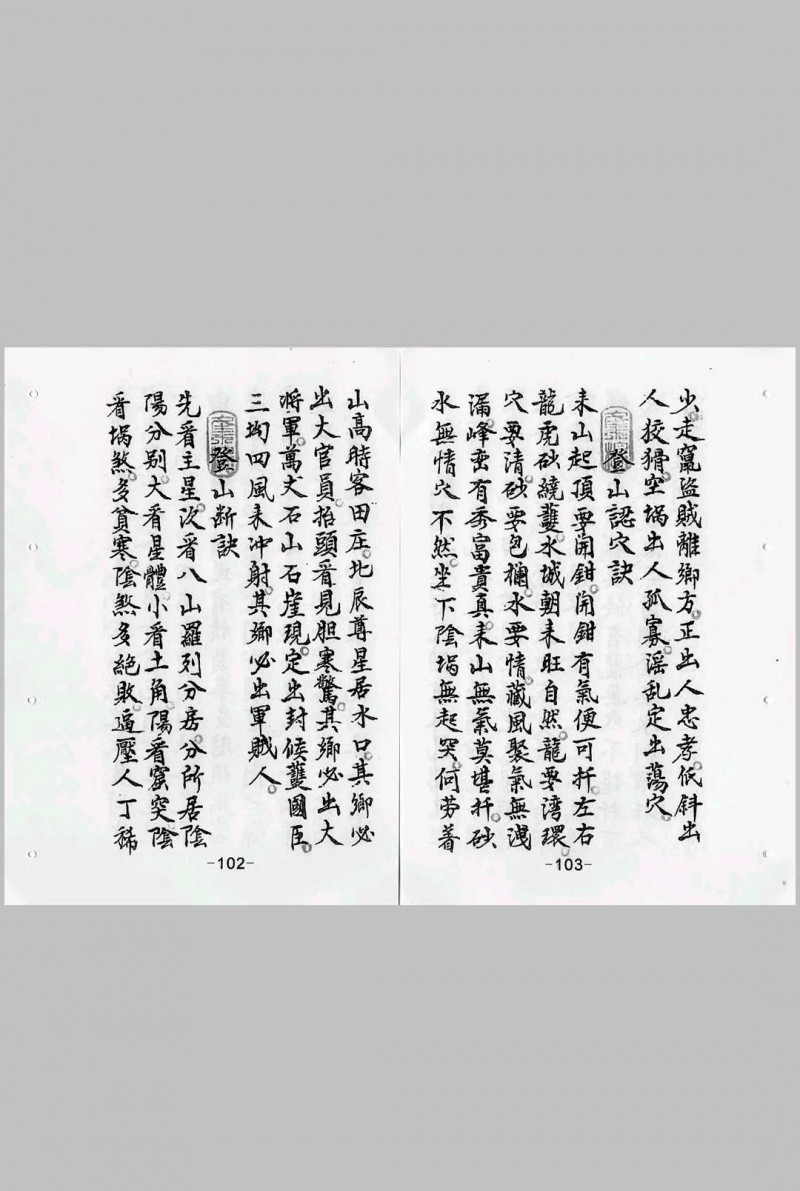 山高時客田庄。北辰尊星居水口。其鄉必
出大官員。抬頭看見胆寒驚。其鄉必出大
將軍。萬丈石山石崖現。定出封候護國臣。
三坳四風耒冲射。其鄉必出軍賊人。
登山断訣
先看主星。次看八山羅列分房。分所居陰
陽分别。大看星體。小看土角。陽看窟突。陰
看塢煞。多貧寒。陰煞多絕敗。逼壓人丁稀
-102-
少。走竄盜賊離鄉。方正出人忠孝。低斜出
人狡猾。空塢出人孤寡。淫乱定出蕩穴。
登山認穴訣
耒山起頂要開鉗。開鉗有氣便可扦。左右
龍虎砂繞護。水城朝耒旺自然。龍要湾環。
穴要清。砂要包欄。水要情。藏風聚氣無洩
漏。峰巒有秀富貴真。耒山無氣莫堪扦。砂
水無情穴不然。坐下陰塢無起突。何劳着
-103-